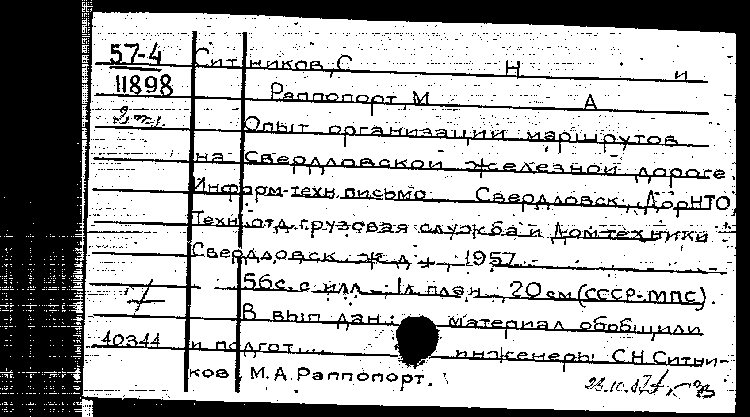 57-4 Ситников, С Н и
11898 Раппопорт, М А
2 Опыт организации маршрутов
на Свердловской железной дороге.
Информ-техн. письмо Свердловск, ДорНТО,
Техн. отд. грузовая служба и Дом техники
Свердловск ж д , 1957
56 с. с илл ; 1 л план ; 20 см (СССР-МПС).
В вып дан: материал обобщили
40344 и подгот... инженеры С.Н. Ситни-
ков, М.А. Раппопорт.